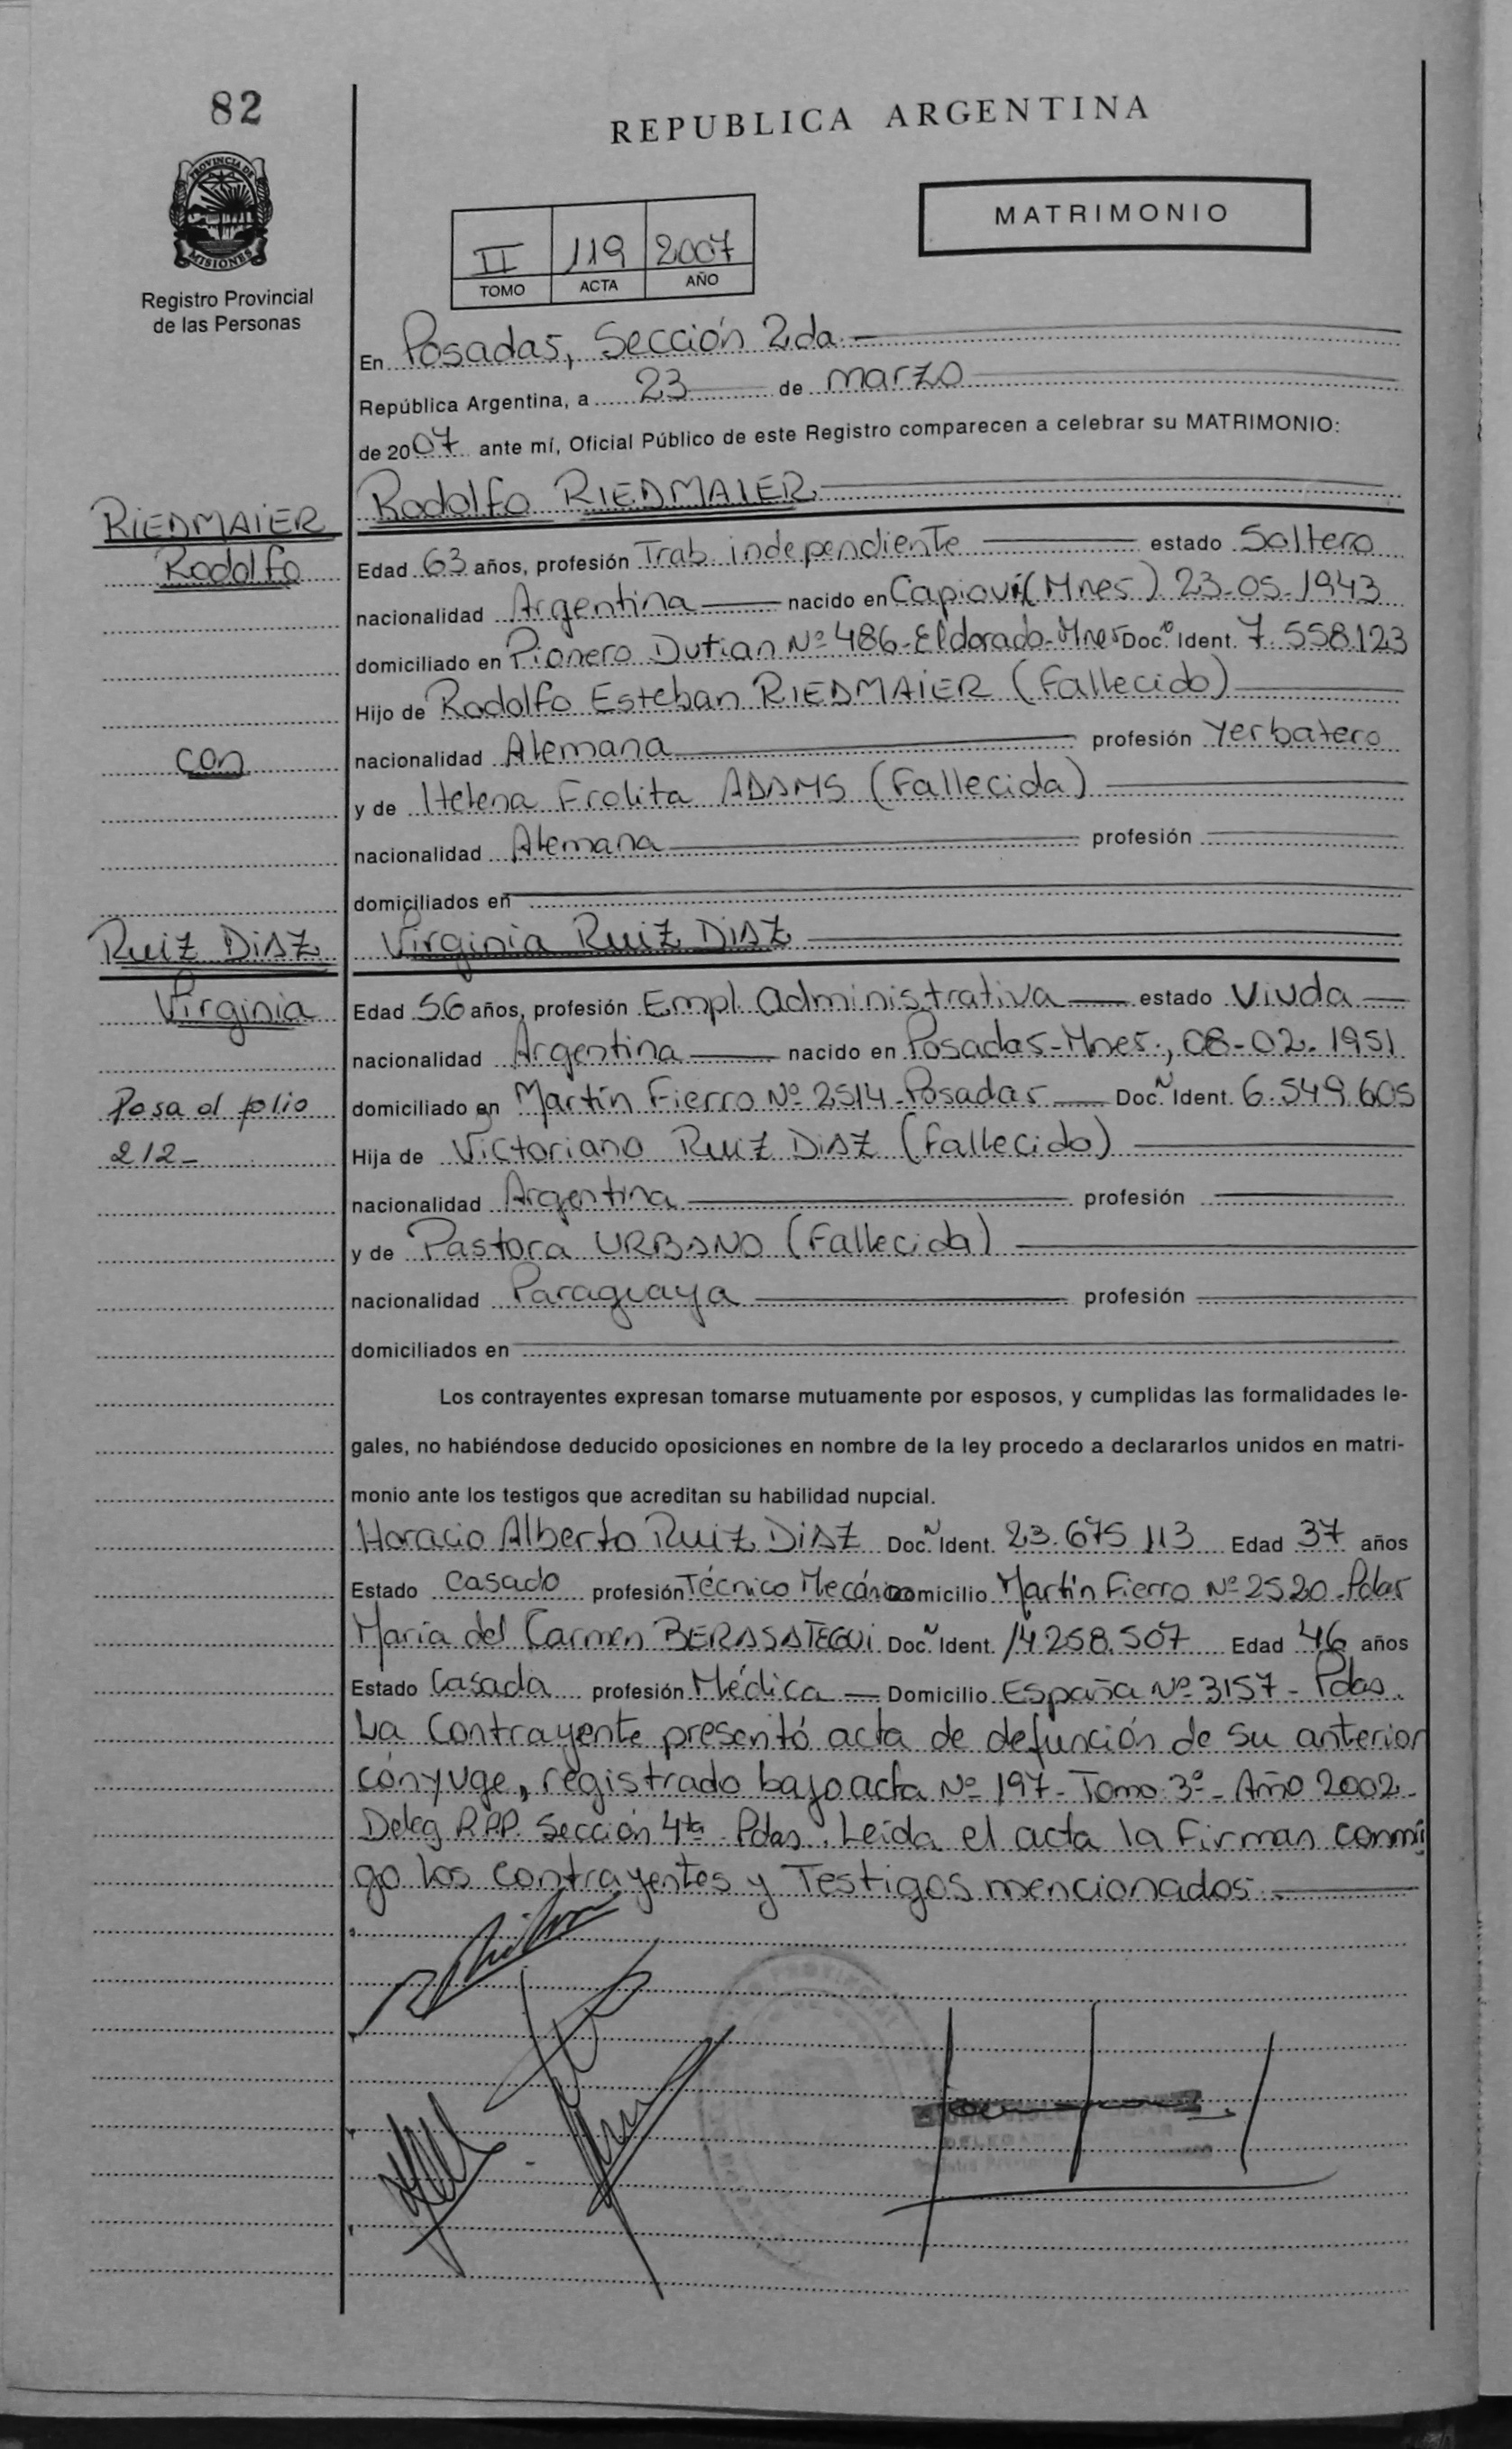 82
REPUBLICA ARGENTINA
PROVINCIA DE
MISIONES
Registro Provincial
de las Personas
MATRIMONIO
II 119 2007
TOMO ACTA AÑO
En Posadas, Sección 2da.
República Argentina, a 23 de marzo
de 2007 ante mí, Oficial Público de este Registro comparecen a celebrar su MATRIMONIO:
RIEDMAIER
Rodolfo
con
RUIZ DIAZ
Virginia
Pasa al folio
212-
Rodolfo RIEDMAIER
Edad 63 años, profesión Trab. independiente estado Soltero
nacionalidad Argentina nacido en Capioví (Mnes) 23-05-1943
domiciliado en Pionero Dutian Nº 486-Eldorado-Mnes Doc. Ident. 7.558.123
Hijo de Rodolfo Esteban RIEDMAIER (Fallecido)
nacionalidad Alemana profesión Yerbatero
y de Helena Frolita ADAMS (Fallecida)
nacionalidad Alemana profesión
domiciliados en
Virginia RUIZ DIAZ
Edad 56 años, profesión Empl. Administrativa estado Viuda
nacionalidad Argentina nacido en Posadas-Mnes., 08-02-1951
domiciliado en Martín Fierro Nº 2514-Posadas Doc. Ident. 6.549.605
Hija de Victoriano RUIZ DIAZ (Fallecido)
nacionalidad Argentina profesión
y de Pastora URBANO (Fallecida)
nacionalidad Paraguaya profesión
domiciliados en
Los contrayentes expresan tomarse mutuamente por esposos, y cumplidas las formalidades le-
gales, no habiéndose deducido oposiciones en nombre de la ley procedo a declararlos unidos en matri-
monio ante los testigos que acreditan su habilidad nupcial.
Horacio Alberto RUIZ DIAZ Doc. Ident. 23.675.113 Edad 37 años
Estado Casado profesión Técnico Mecánico Domicilio Martín Fierro Nº 2520-Pdas
María del Carmen BERASATEGUI Doc. Ident. 14.258.507 Edad 46 años
Estado Casada profesión Médica Domicilio España Nº 3157 - Pdas.
La contrayente presentó acta de defunción de su anterior
cónyuge, registrado bajo acta Nº 197-Tomo 3º-Año 2002-
Deleg R.P.P. Sección 4ta Pdas. Leída el acta la firman conmi
go los contrayentes y Testigos mencionados.